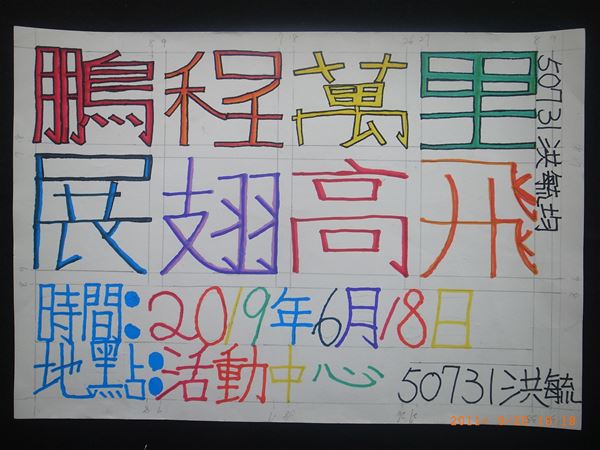 鵬程萬里
展翅高飛
時間:2019年6月18日
地點:活動中心
50731洪毓
50731洪毓均